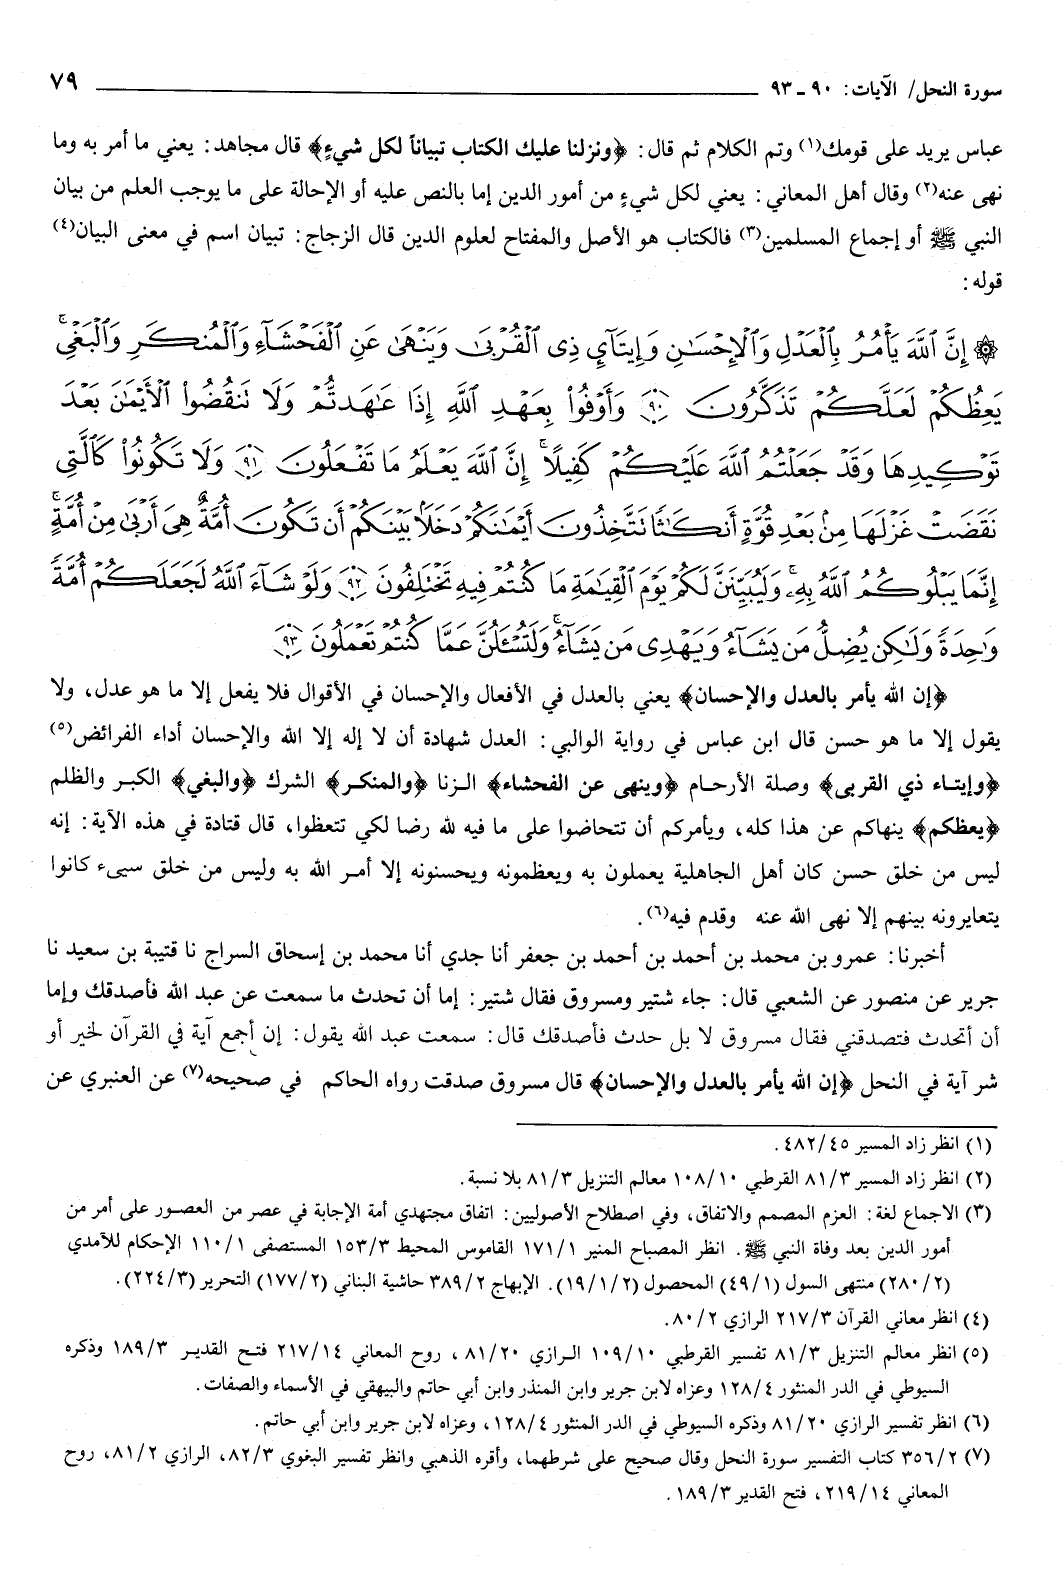 سورة النحل/ الآيات: ٩٠ ـ ٩٣ ٧٩
عباس يريد على قومك(١) وتم الكلام ثم قال: ﴿ونزلنا عليك الكتاب تبياناً لكل شيءٍ﴾ قال مجاهد: يعني ما أمر به وما
نهى عنه(٢) وقال أهل المعاني: يعني لكل شيءٍ من أمور الدين إما بالنص عليه أو الإحالة على ما يوجب العلم من بيان
النبي ﷺ أو إجماع المسلمين(٣) فالكتاب هو الأصل والمفتاح لعلوم الدين قال الزجاج: تبيان اسم في معنى البيان(٤)
قوله:
۞ إِنَّ ٱللَّهَ يَأْمُرُ بِٱلْعَدْلِ وَٱلْإِحْسَٰنِ وَإِيتَآيِٕ ذِى ٱلْقُرْبَىٰ وَيَنْهَىٰ عَنِ ٱلْفَحْشَآءِ وَٱلْمُنكَرِ وَٱلْبَغْىِ ۚ
يَعِظُكُمْ لَعَلَّكُمْ تَذَكَّرُونَ ﴿٩٠﴾ وَأَوْفُوا۟ بِعَهْدِ ٱللَّهِ إِذَا عَٰهَدتُّمْ وَلَا تَنقُضُوا۟ ٱلْأَيْمَٰنَ بَعْدَ
تَوْكِيدِهَا وَقَدْ جَعَلْتُمُ ٱللَّهَ عَلَيْكُمْ كَفِيلًا ۚ إِنَّ ٱللَّهَ يَعْلَمُ مَا تَفْعَلُونَ ﴿٩١﴾ وَلَا تَكُونُوا۟ كَٱلَّتِى
نَقَضَتْ غَزْلَهَا مِنۢ بَعْدِ قُوَّةٍ أَنكَٰثًا تَتَّخِذُونَ أَيْمَٰنَكُمْ دَخَلًۢا بَيْنَكُمْ أَن تَكُونَ أُمَّةٌ هِىَ أَرْبَىٰ مِنْ أُمَّةٍ ۚ
إِنَّمَا يَبْلُوكُمُ ٱللَّهُ بِهِۦ ۚ وَلَيُبَيِّنَنَّ لَكُمْ يَوْمَ ٱلْقِيَٰمَةِ مَا كُنتُمْ فِيهِ تَخْتَلِفُونَ ﴿٩٢﴾ وَلَوْ شَآءَ ٱللَّهُ لَجَعَلَكُمْ أُمَّةً
وَٰحِدَةً وَلَٰكِن يُضِلُّ مَن يَشَآءُ وَيَهْدِى مَن يَشَآءُ ۚ وَلَتُسْـَٔلُنَّ عَمَّا كُنتُمْ تَعْمَلُونَ ﴿٩٣﴾
﴿إن الله يأمر بالعدل والإحسان﴾ يعني بالعدل في الأفعال والإحسان في الأقوال فلا يفعل إلا ما هو عدل، ولا
يقول إلا ما هو حسن قال ابن عباس في رواية الوالبي: العدل شهادة أن لا إله إلا الله والإحسان أداء الفرائض(٥)
﴿وإيتاء ذي القربى﴾ وصلة الأرحام ﴿وينهى عن الفحشاء﴾ الزنا ﴿والمنكر﴾ الشرك ﴿والبغي﴾ الكبر والظلم
﴿يعظكم﴾ ينهاكم عن هذا كله، ويأمركم أن تتحاضوا على ما فيه لله رضا لكي تتعظوا، قال قتادة في هذه الآية: إنه
ليس من خلق حسن كان أهل الجاهلية يعملون به ويعظمونه ويحسنونه إلا أمر الله به وليس من خلق سيىء كانوا
يتعايرونه بينهم إلا نهى الله عنه وقدم فيه(٦).
أخبرنا: عمرو بن محمد بن أحمد بن أحمد بن جعفر أنا جدي أنا محمد بن إسحاق السراج نا قتيبة بن سعيد نا
جرير عن منصور عن الشعبي قال: جاء شتير ومسروق فقال شتير: إما أن تحدث ما سمعت عن عبد الله فأصدقك وإما
أن أتحدث فتصدقني فقال مسروق لا بل حدث فأصدقك قال: سمعت عبد الله يقول: إن أجمع آية في القرآن لخير أو
شر آية في النحل ﴿إن الله يأمر بالعدل والإحسان﴾ قال مسروق صدقت رواه الحاكم في صحيحه(٧) عن العنبري عن
(١) انظر زاد المسير ٤٨٢/٤٥.
(٢) انظر زاد المسير ٨١/٣ القرطبي ١٠٨/١٠ معالم التنزيل ٨١/٣ بلا نسبة.
(٣) الاجماع لغة: العزم المصمم والاتفاق، وفي اصطلاح الأصوليين: اتفاق مجتهدي أمة الإجابة في عصر من العصور على أمر من
أمور الدين بعد وفاة النبي ﷺ. انظر المصباح المنير ١٧١/١ القاموس المحيط ١٥٣/٣ المستصفى ١١٠/١ الإحكام للآمدي
(٢٨٠/٢) منتهى السول (٤٩/١) المحصول (١٩/١/٢). الإبهاج ٣٨٩/٢ حاشية البناني (١٧٧/٢) التحرير (٢٢٤/٣).
(٤) انظر معاني القرآن ٢١٧/٣ الرازي ٨٠/٢.
(٥) انظر معالم التنزيل ٨١/٣ تفسير القرطبي ١٠٩/١٠ الرازي ٨١/٢٠، روح المعاني ٢١٧/١٤ فتح القدير ١٨٩/٣ وذكره
السيوطي في الدر المنثور ١٢٨/٤ وعزاه لابن جرير وابن المنذر وابن أبي حاتم والبيهقي في الأسماء والصفات.
(٦) انظر تفسير الرازي ٨١/٢٠ وذكره السيوطي في الدر المنثور ١٢٨/٤، وعزاه لابن جرير وابن أبي حاتم.
(٧) ٣٥٦/٢ كتاب التفسير سورة النحل وقال صحيح على شرطهما، وأقره الذهبي وانظر تفسير البغوي ٨٢/٣، الرازي ٨١/٢، روح
المعاني ٢١٩/١٤، فتح القدير ١٨٩/٣.